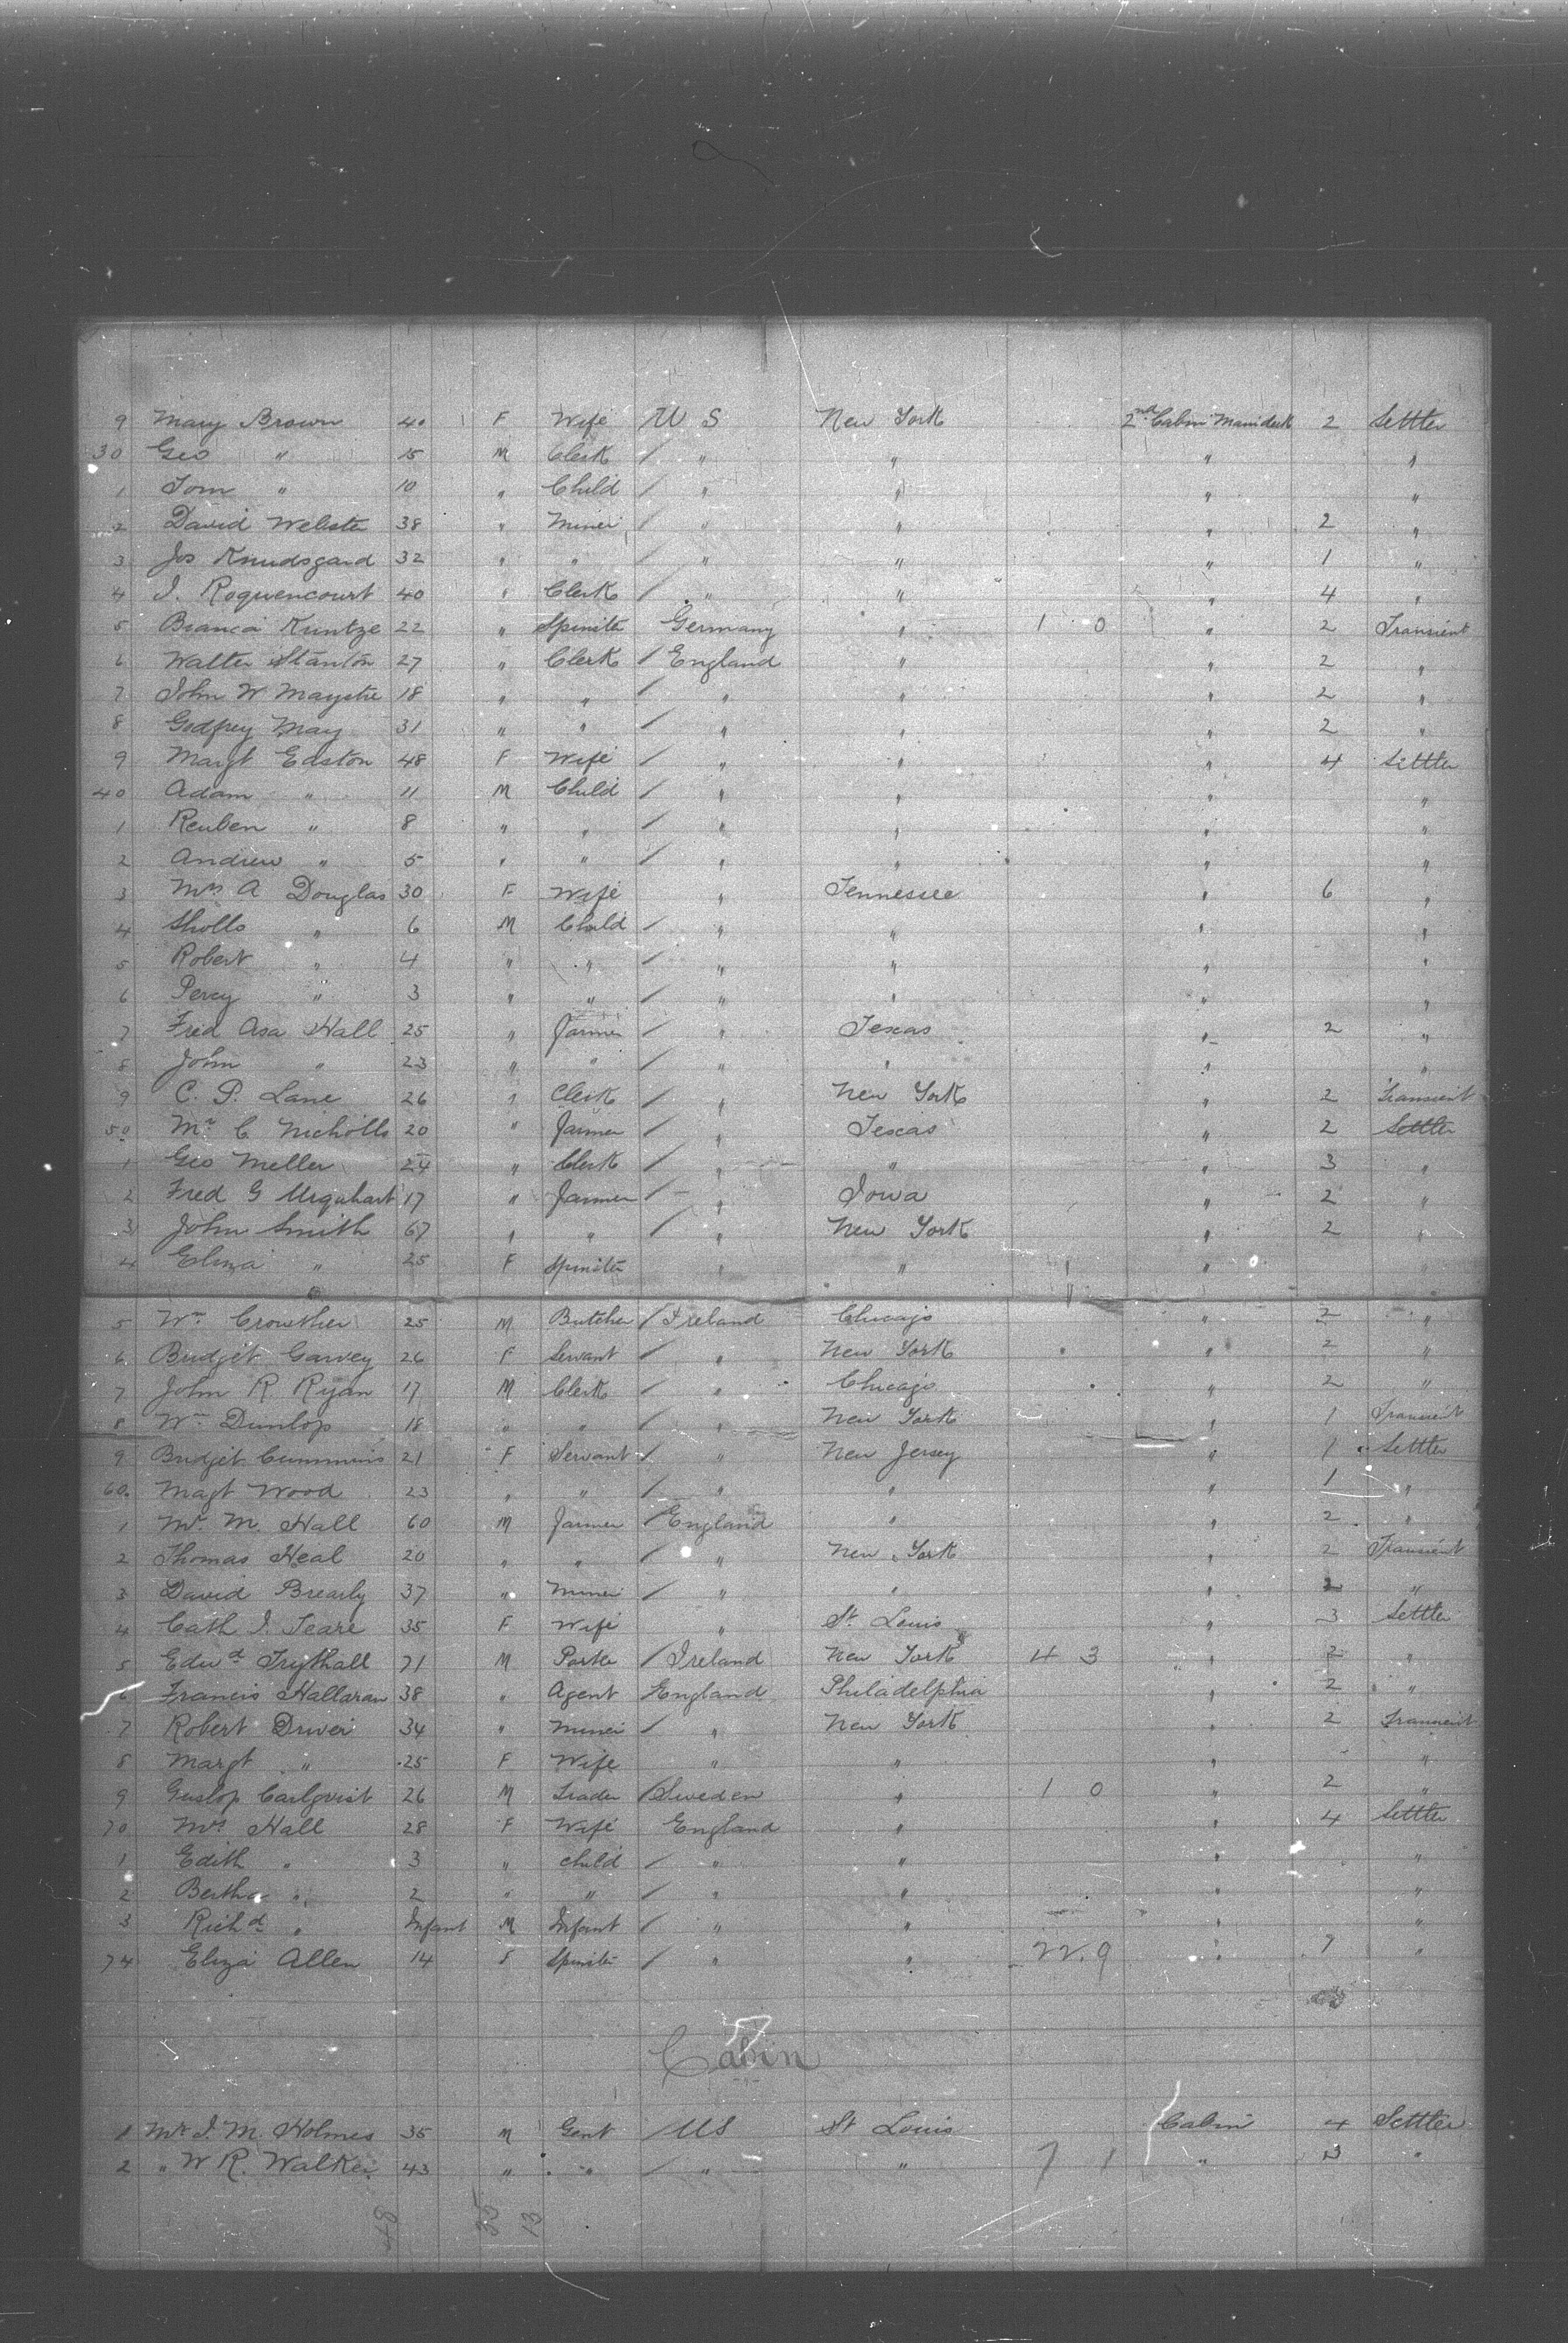 9 Mary Brown 40 F Wife U S New York 2nd Cabin Maindeck 2 Settler
30 Geo " 15 M Clerk / " " " "
1 Tom " 10 " Child / " " " "
2 David Webster 38 " Miner / " " " 2 "
3 Jos Knudsgard 32 " " / " " " 1 "
4 J. Roquencourt 40 " Clerk / " " " 4 "
5 Bianca Kuntze 22 " Spinster Germany " 1 0 " 2 Transient
6 Walter Stanton 27 " Clerk / England " " 2 "
7 John W Maystre 18 " " / " " " 2 "
8 Godfrey May 31 " " / " " " 2 "
9 Margt Easton 48 F Wife / " " " 4 Settler
40 Adam " 11 M Child / " " " "
1 Reuben " 8 " " / " " " "
2 Andrew " 5 " " / " " " "
3 Mrs A Douglas 30 F Wife " Tennessee " 6 "
4 Sholto " 6 M Child / " " " "
5 Robert " 4 " " / " " " "
6 Percy " 3 " " / " " " "
7 Fred Asa Hall 25 " Farmer / " Texas " 2 "
8 John " 23 " " / " " " "
9 C. P. Lane 26 " Clerk / " New York " 2 Transient
50 Mr C Nicholls 20 " Farmer / " Texas " 2 Settler
1 Geo Meller 24 " Clerk / " " " 3 "
2 Fred G Urquhart 17 " Farmer / " Iowa " 2 "
3 John Smith 67 " " / " New York " 2 "
4 Eliza " 25 F Spinster " " " "
5 Wm Crowther 25 M Butcher / Ireland Chicago " 2 "
6 Bridget Garvey 26 F Servant / " New York " 2 "
7 John R Ryan 17 M Clerk / " Chicago " 2 "
8 Wm Dunlop 18 " " / " New York " 1 Transient
9 Bridget Cummins 21 F Servant / " New Jersey " 1 Settler
60 Magt Wood 23 " " / " " " 1 "
1 Mr. M. Hall 60 M Farmer / England " " 2 "
2 Thomas Heal 20 " " / " New York " 2 Transient
3 David Brearly 37 " Miner / " " " 2 "
4 Cath J. Teare 35 F Wife " St. Louis " 3 Settler
5 Edwd Trythall 71 M Porter / Ireland New York 4 3 " 2 "
6 Francis Hallaran 38 " Agent England Philadelphia " 2 "
7 Robert Driver 34 " Miner / " New York " 2 Transient
8 Margt " 25 F Wife " " " "
9 Carlqvist 26 M / Sweden " 1 0 " 2 "
70 Mrs Hall 28 F Wife England " " 4 Settler
1 Edith " 3 " child / " " " "
2 Bertha " 2 " " / " " " "
3 Richd " Infant M Infant / " " " "
74 Eliza Allen 14 F Spinster / " " 22.9 " 7 "
Cabin
1 Mr J. M. Holmes 35 M Gent / US St Louis Cabin 4 Settler
2 " W R. Walker 43 " " / " " 7 1 " 3 "
48 35 13